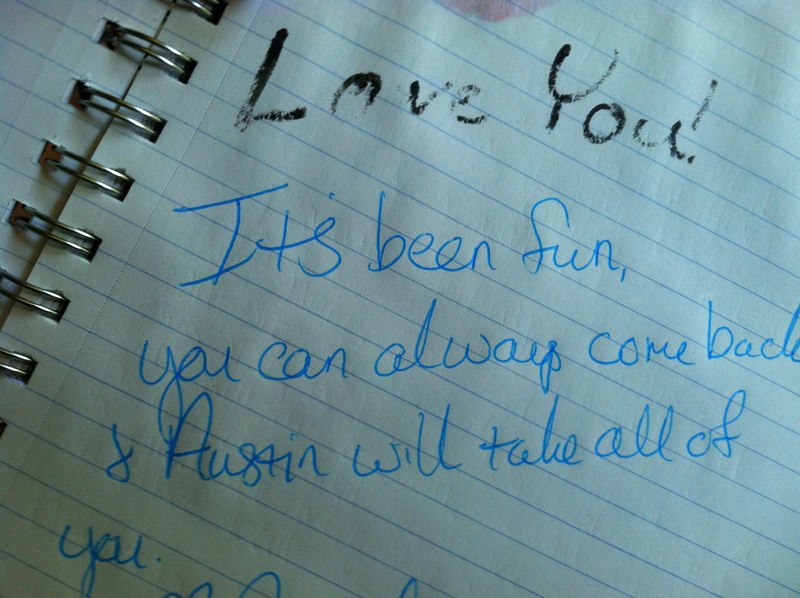 Love You!
It's been fun,
you can always come back
& Austin will take all of
you.